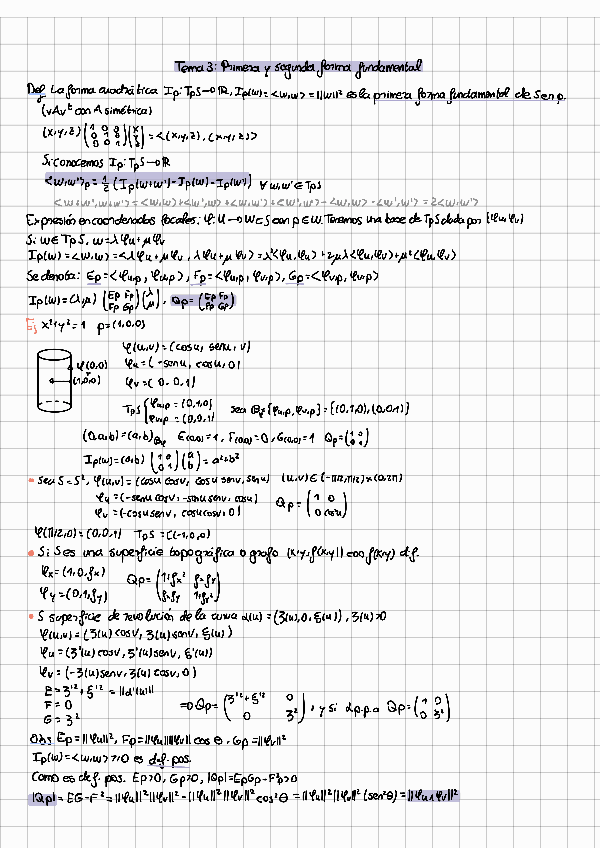 Tema 3: Primera y segunda forma fundamental
Def La forma cuadrática Ip: TpS→ℝ, Ip(w)=<w,w>=||w||² es la primera forma fundamental de S en p.
(vAvᵗ con A simétrica)
(x,y,z) (1 0 0 / 0 1 0 / 0 0 1) (x / y / z) = <(x,y,z),(x,y,z)>
Si conocemos Ip: TpS→ℝ
<w,w'>p = 1/2 (Ip(w+w')-Ip(w)-Ip(w')) ∀w,w'∈TpS
<w+w',w+w'> = <w,w>+<w',w>+<w,w'>+<w',w'> - <w,w> - <w',w'> = 2<w,w'>
Expresión en coordenadas locales: φ: U→W⊂S con p∈W. Tenemos una base de TpS dada por {φu,φv}
Si w∈TpS, w=λφu+μφv
Ip(w)=<w,w>=<λφu+μφv, λφu+μφv>=λ²<φu,φu>+2μλ<φu,φv>+μ²<φv,φv>
Se denota: Ep=<φu,p, φu,p>, Fp=<φu,p, φv,p>, Gp=<φv,p, φv,p>
Ip(w)=(λ,μ) (Ep Fp / Fp Gp) (λ / μ), Qp=(Ep Fp / Fp Gp)
Ej x²+y²=1 p=(1,0,0)
φ(u,v)=(cosu, senu, v)
φ(0,0)
φu=(-senu, cosu, 0)
(1,0,0)
φv=(0,0,1)
TpS { φu,p=(0,1,0) / φv,p=(0,0,1) sea B={φu,p, φv,p}={(0,1,0),(0,0,1)}
(0,a,b)=(a,b) E(0,0)=1, F(0,0)=0, G(0,0)=1 Qp=(1 0 / 0 1)
Ip(w)=(a,b) (1 0 / 0 1) (a / b) = a²+b²
• Sea S=S², φ(u,v)=(cosu cosv, cosu senv, senu) (u,v)∈(-π/2,π/2)×(0,2π)
φu=(-senu cosv, -senu senv, cosu) Qp=(1 0 / 0 cosu)
φv=(-cosu senv, cosu cosv, 0)
φ(π/2,0)=(0,0,1) TpS=
• Si S es una superficie topográfica o grafo (x,y,f(x,y)) con f(x,y) dif.
φx=(1,0,fx) Qp=(1+fx² fx·fy / fx·fy 1+fy²)
φy=(0,1,fy)
• S superficie de revolución de la curva α(u)=(ζ(u),0,ξ(u)), ζ(u)>0
φ(u,v)=(ζ(u)cosv, ζ(u)senv, ξ(u))
φu=(ζ'(u)cosv, ζ'(u)senv, ξ'(u))
φv=(-ζ(u)senv, ζ(u)cosv, 0)
E=ζ'²+ξ'²=||α'(u)||
F=0 ⇒Qp=(ζ'²+ξ'² 0 / 0 ζ²), y si α p.p.a Qp=(1 0 / 0 ζ²)
G=ζ²
Obs Ep=||φu||², Fp=||φu||||φv|| cos θ, Gp=||φv||²
Ip(w)=<w,w>≥0 es def. pos.
Como es def. pos. Ep>0, Gp>0, |Qp|=EpGp-F²p>0
|Qp|=EG-F²=||φu||²||φv||²-||φu||²||φv||²cos²θ=||φu||²||φv||²(sen²θ)=||φu∧φv||²